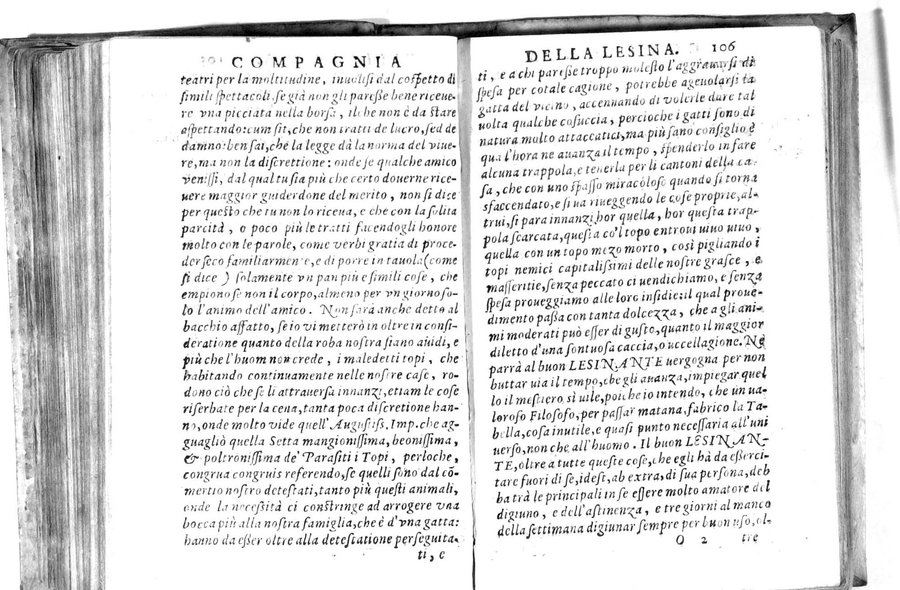 COMPAGNIA
teatri per la moltitudine, inuolisi dal cospetto di
simili spettacoli, se già non gli paresse bene riceue-
re vna picciata nella borsa, il che non è da stare
aspettando: cum sit, che non tratti de lucro, sed de
damno: ben sai, ché la legge dà la norma del viue-
re, ma non la discrettione: onde se qualche amico
venissi, dal qual tu sia più che certo douerne rice-
uere maggior guiderdone del merito, non si dice
per questo che tu non lo riceua, e che con la solita
parcità, o poco più le tratti facendogli honore
molto con le parole, come verbi gratia di proce-
der seco familiarmente, e di porre in tauola (come
si dice) solamente vn pan più e simili cose, che
empiono se non il corpo, almeno per vn giorno so-
lo l'animo dell'amico. Non sarà anche detto al
bacchio affatto, se io vi metterò in oltre in consi-
deratione quanto della roba nostra siano auidi, e
più che l'huom non crede, i maledetti topi, che
habitando continuamente nelle nostre case, ro-
dono ciò che se li attrauersa innanzi, etiam le cose
riserbate per la cena, tanta poca discretione han-
no, onde molto vide quell'Augustiss. Imp. che ag-
guagliò quella Setta mangionissima, beonissima,
& poltronissima de' Parasiti i Topi, perloche,
congrua congruis referendo, se quelli sono dal cō-
mertio nostro detestati, tanto più questi animali,
onde la necessità ci constringe ad arrogere vna
bocca più alla nostra famiglia, che è d'vna gatta:
hanno da esser oltre alla detestatione perseguita-
ti, e
DELLA LESINA. 106
ti, e a chi paresse troppo molesto l'aggrauarsi di
spesa per cotale cagione, potrebbe ageuolarsi la
gatta del vicino, accennando di volerle dare tal
uolta qualche cosuccia, percioche i gatti sono di
natura molto attaccatici, ma più sano consiglio è
qua l'hora ne auanza il tempo, spenderlo in fare
alcuna trappola, e tenerla per li cantoni della ca-
sa, che con uno spasso miracoloso quando si torna
sfaccendato, e si ua riueggendo le cose proprie, al-
trui, si para innanzi hor quella, hor questa trap-
pola scarcata, questa co'l topo entroui uiuo uiuo,
quella con un topo mezo morto, così pigliando i
topi nemici capitalissimi delle nostre grasce, e
masseritie, senza peccato ci uendichiamo, e senza
spesa proueggiamo alle loro insidie: il qual proue-
dimento passa con tanta dolcezza, che a gli ani-
mi moderati può esser di gusto, quanto il maggior
diletto d'una sontuosa caccia, o uccellagione. Nè
parrà al buon LESINANTE uergogna per non
buttar uia il tempo, che gli auanza, impiegar quel
lo il mestiero sì uile, poiche io intendo, che un ua-
loroso Filosofo, per passar matana, fabrico la Ta-
bella, cosa inutile, e quasi punto necessaria all'uni
uerso, non che all'huomo. Il buon LESINAN-
TE, oltre a tutte queste cose, che egli hà da esserci-
tare fuori di se, idest, ab extra, di sua persona, deb
ba trà le principali in se essere molto amatore del
digiuno, e dell'astinenza, e tre giorni al manco
della settimana digiunar sempre per buon uso, ol-
O 2 tre